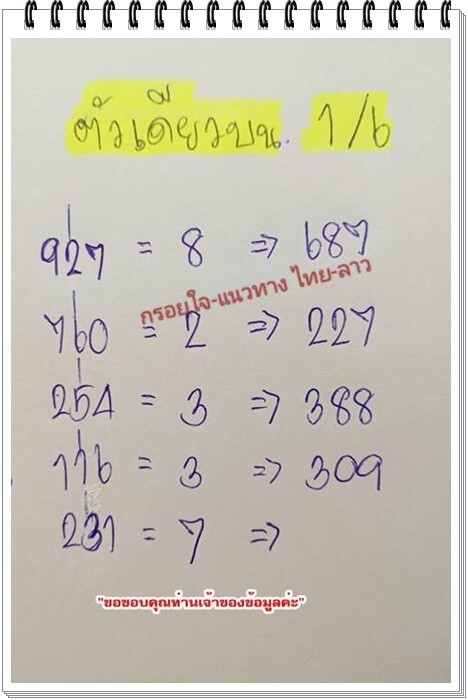 ตัวเดียวบน. 1/6
927 = 8 => 687
กรอยใจ-แนวทาง ไทย-ลาว
760 = 2 => 227
254 = 3 => 388
116 = 3 => 309
231 = 7 =>
"ขอขอบคุณท่านเจ้าของข้อมูลค่ะ"